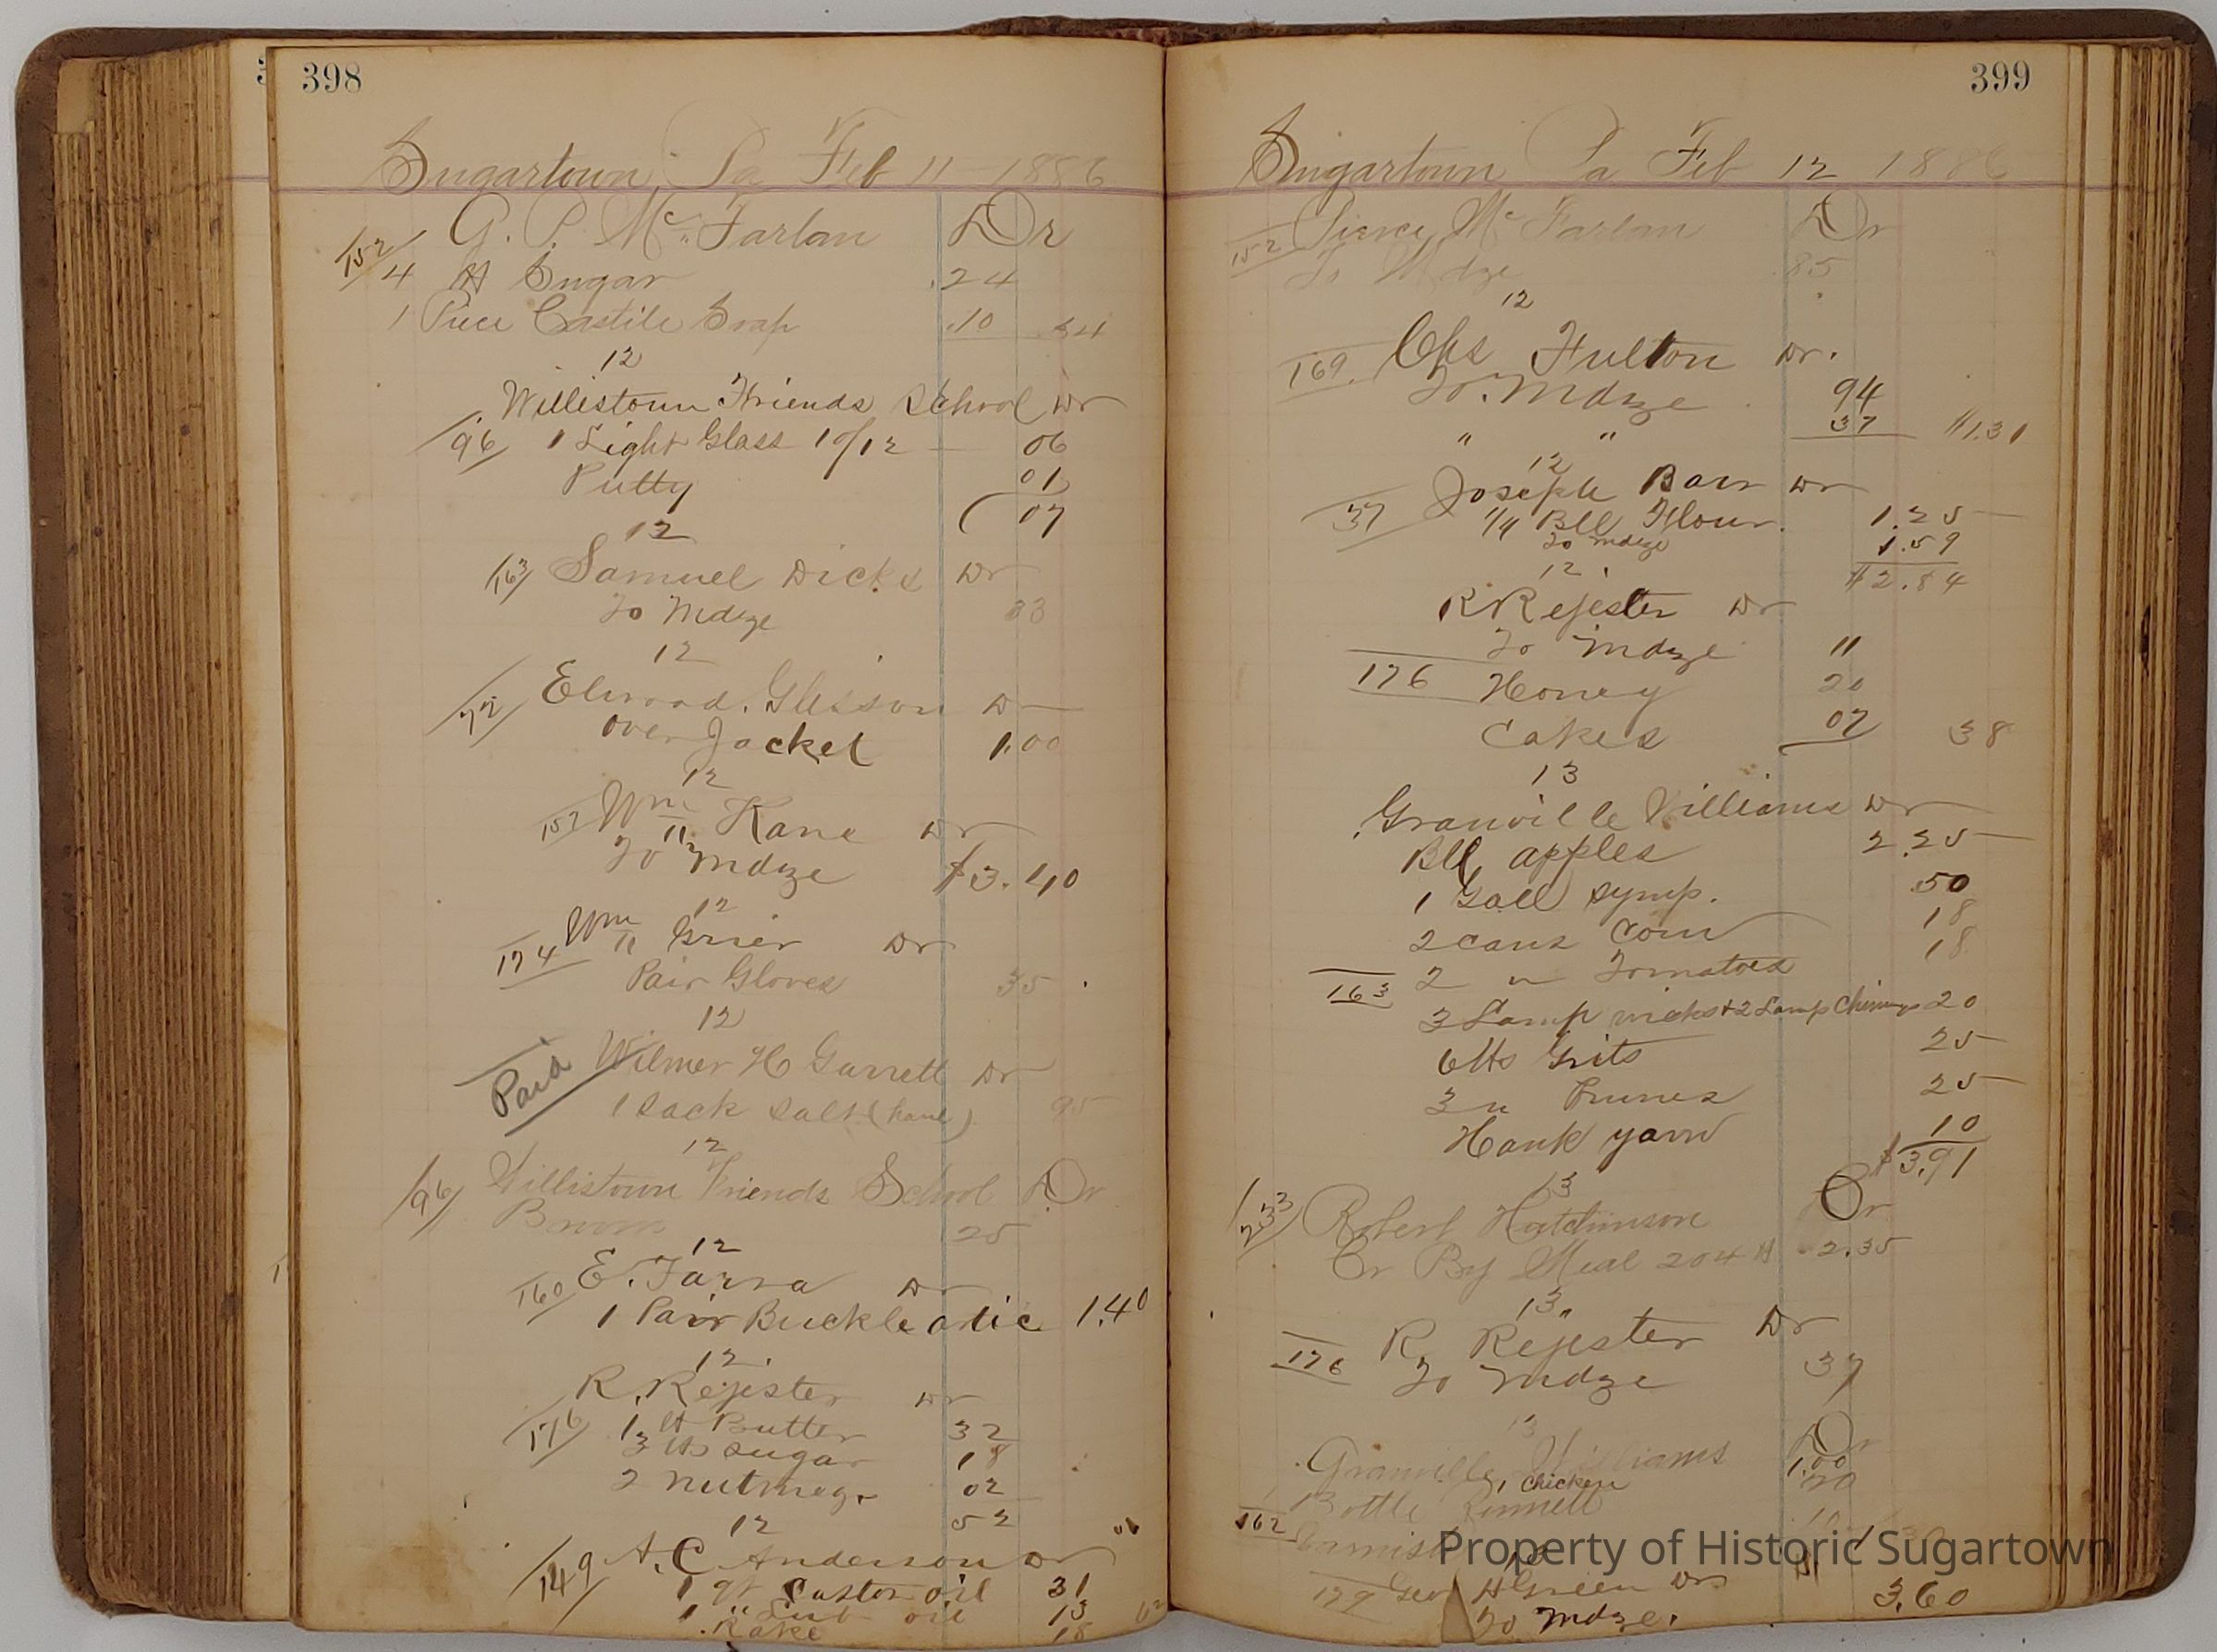 398
Sugartown, Pa Feb 11 1886
152 G. P. McFarlan Dr
4 # Sugar .24
1 Piece Castile Soap .10 34
12
Willistown Friends School Dr
96 1 Light Glass 10/12 06
Putty 01
07
12
163 Samuel Dicks Dr
To Mdze 33
12
72 Elwood Glisson Dr
over Jacket 1.00
12
157 Wm Kane Dr
To Mdze $3.40
12
174 Wm Grier Dr
Pair Gloves 35
12
Paid Wilmer H Garrett Dr
1 Sack Salt (haul) 95
12
96 Willistown Friends School Dr
Broom 25
12
160 E. Farra Dr
1 Pair Buckle 1.40
12
R. Rejester Dr
176 1 # Butter 32
3 # Sugar 18
2 nutmegs 02
52
12
149 A. C. Anderson Dr
1 qt Castor oil 31
1 " oil 13
Rake 18
399
Sugartown Pa Feb 12 1886
152 Pierce McFarlan Dr
To Mdze .85
12
169 Chs Fulton Dr.
To Mdze 94
" " 37 $1.31
12
Joseph Barr Dr
37 1/4 Bll Flour. 1.25
To mdze 1.59
12 $2.84
R Rejester Dr
To mdze 11
176 Honey 20
Cakes 07 38
13
Granville Williams Dr
Bll apples 2.25
1 Gall Syrup. .50
2 cans Corn 18
163 2 " Tomatoes 18
3 Lamp wicks + 2 Lamp Chimnys 20
6 lbs Grits 25
3 " Prunes 25
Hank yarn 10
$3.91
13
233 Robert Hutchinson Cr
Cr By Meal 204 # 2.35
13
176 R. Rejester Dr
To Mdze 37
13
Granville Williams Dr
1 Chicken 1.00
Bottle Rennett 20
162
Property of Historic Sugartown
179 Geo H Green Dr
To Mdze. 3.60